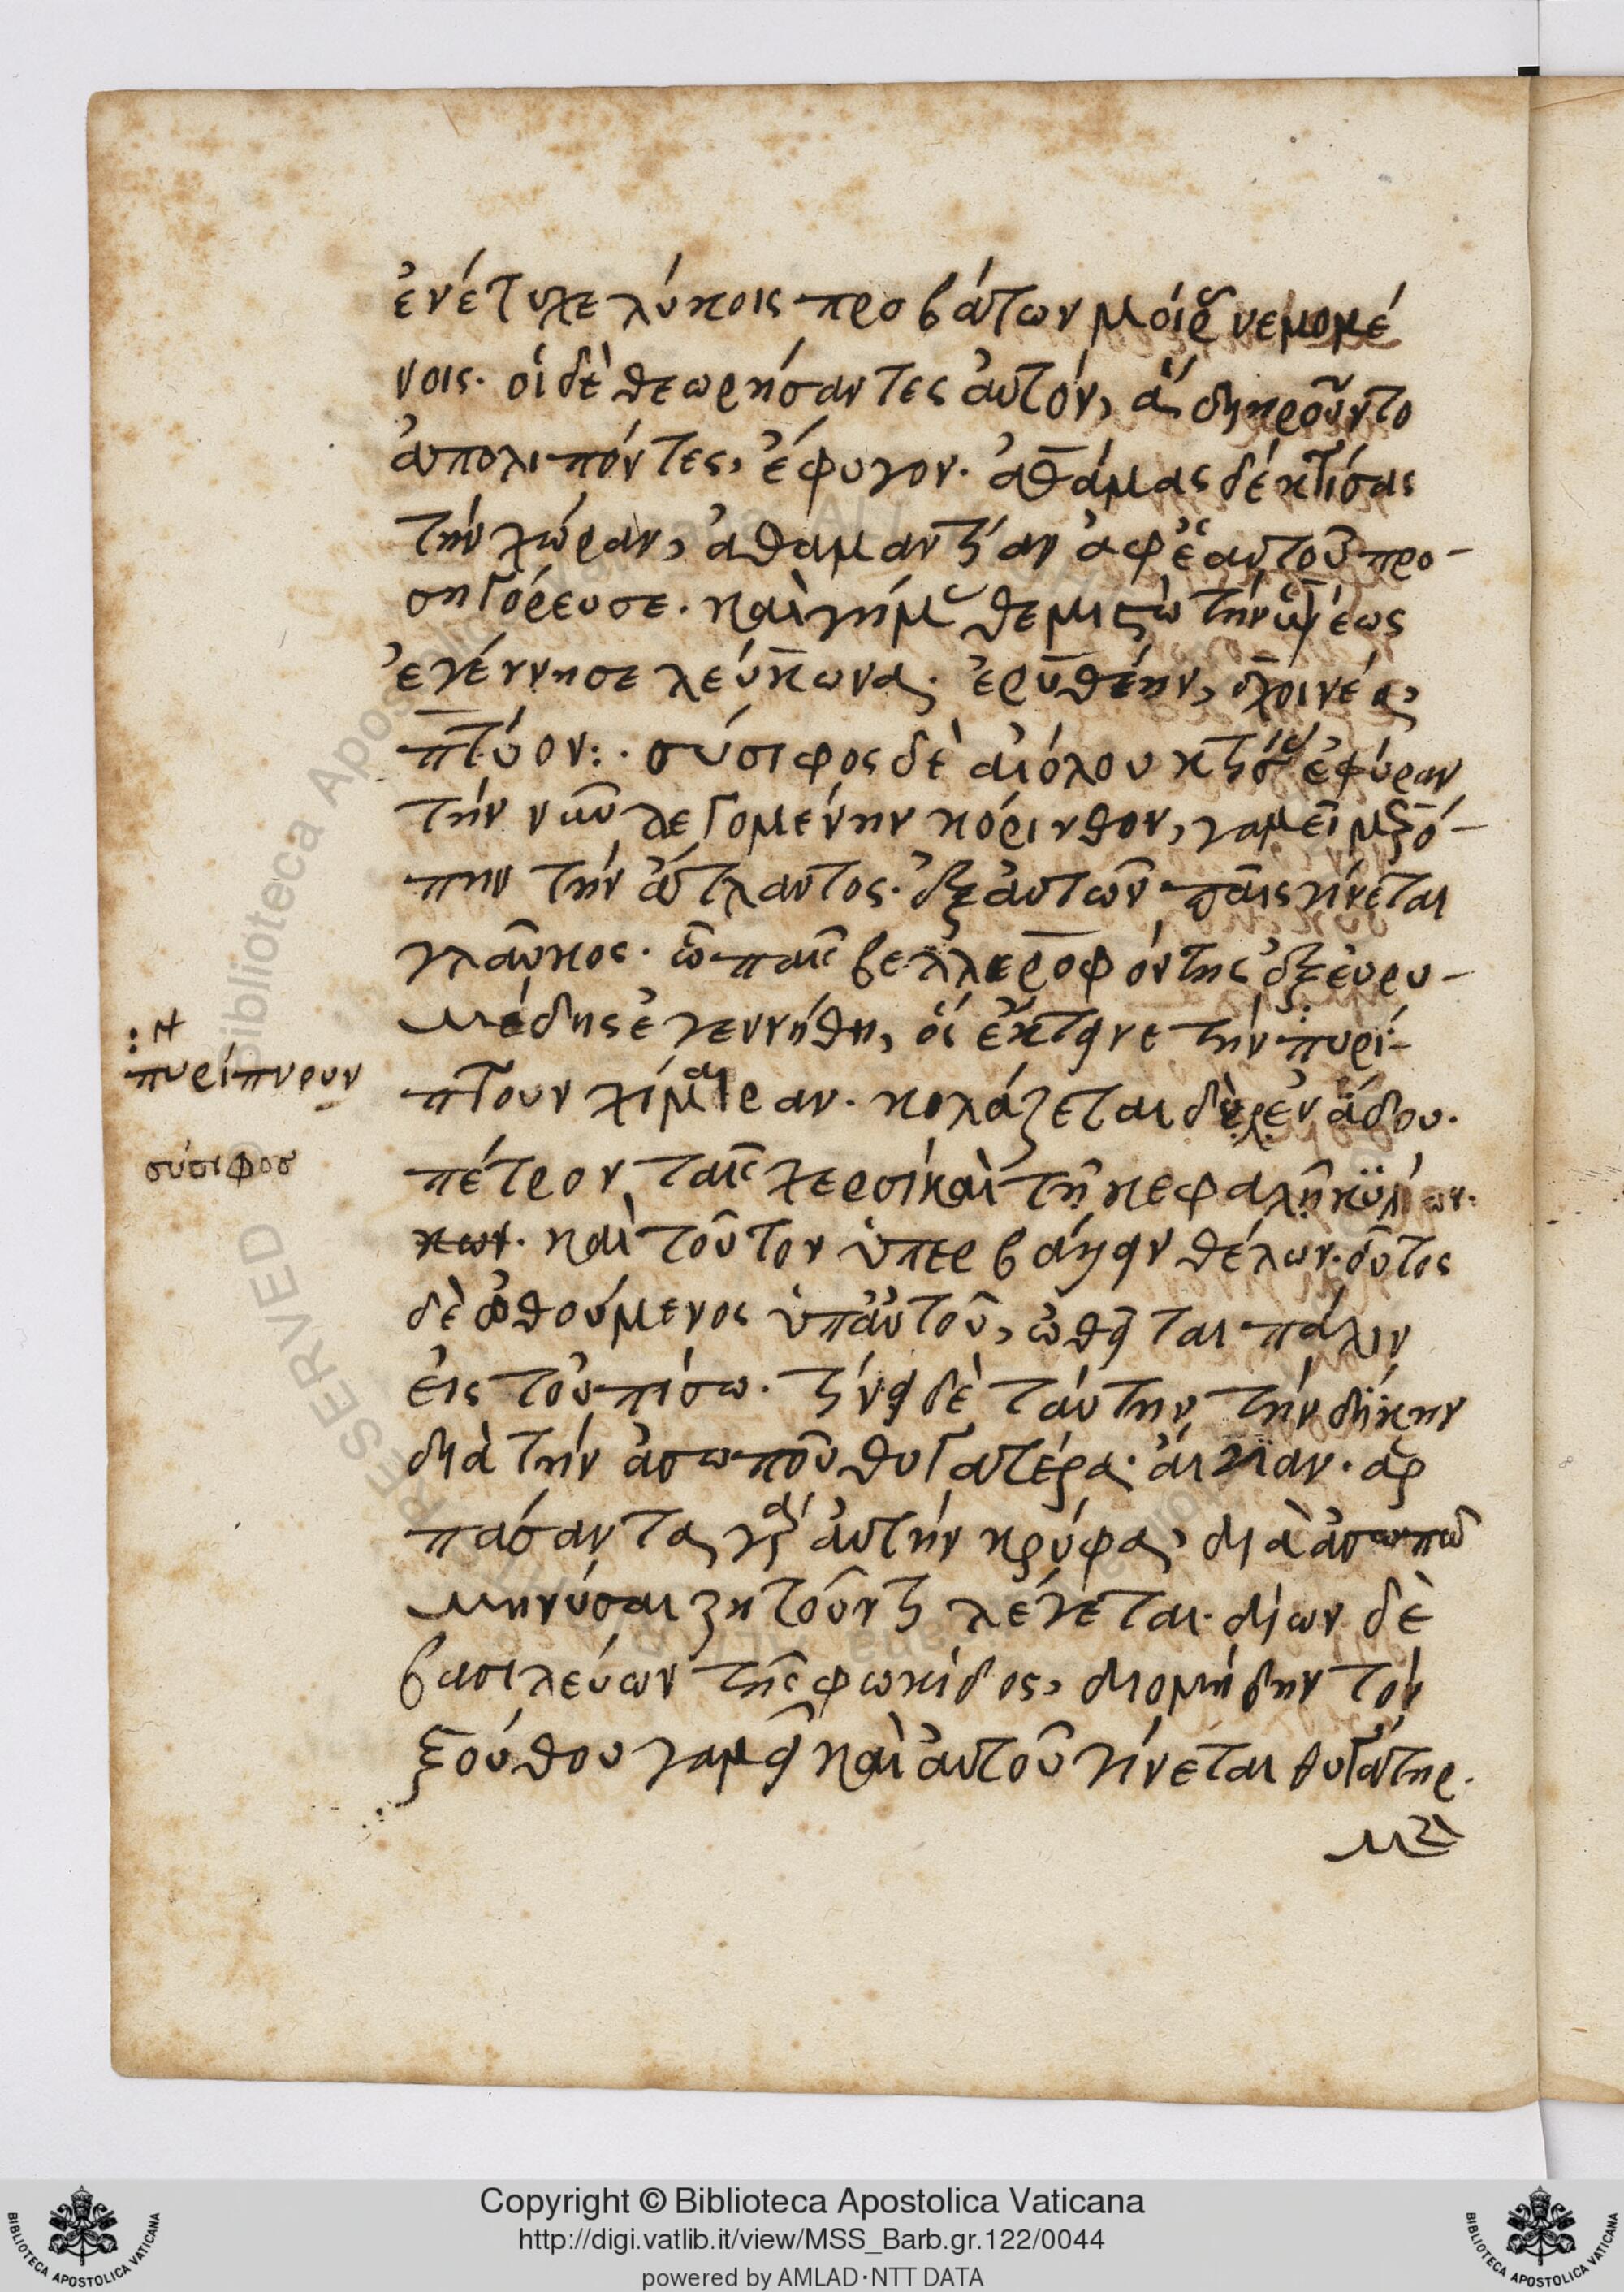 ἐνέτυχε λύκοις προβάτων μοίρας νεμομέ
νοις· οἱ δὲ θεωρήσαντες αὐτόν, ἃ διῃροῦντο
ἀπολιπόντες, ἔφυγον· ἀθάμας δὲ κτίσας
τὴν χώραν, ἀθαμαντίαν ἀφ' ἑαυτοῦ προ-
σηγόρευσε· καὶ γήμας θεμιστὼ τὴν ὑψέως
ἐγέννησε λεύκωνα· ἐρύθειην, σχοινέα,
πτύον:· σύσιφος δὲ αἰόλου κτίσας ἐφύραν
τὴν νῦν λεγομένην κόρινθον, γαμεῖ μερό-
πην τὴν ἄτλαντος· ἐξ αὐτῶν παῖς γίνεται
γλαῦκος· ὧ παῖς βελλεροφόντης ἐξ εὐρυ-
μέδης ἐγεννήθη, ὃς ἔκτεινε τὴν πυρί-
πτουν χίμαιραν· κολάζεται δὲ ἐν ἅδου·
πέτρον ταῖς χερσὶ καὶ τῇ κεφαλῇ κυλίων·
κων· καὶ τοῦτον ὑπερβάλλειν θέλων· οὗτος
δὲ ὠθούμενος ὑπ' αὐτοῦ, ὠθεῖται πάλιν
εἰς τοὐπίσω· τίνει δὲ ταύτην τὴν δίκην
διὰ τὴν ἀσωποῦ θυγατέρα· αἴγιαν· ἁρ
πάσαντα γὰρ αὐτὴν κρύφα, δία ἀσωπῶ
μηνύσαι ζητοῦντι λέγεται· δίων δὲ
βασιλεύων τῆς φωκίδος, διομήδην τὸν
ξούθου γαμεῖ καὶ αὐτοῦ γίνεται θυγάτηρ·
: η
πυρίπνουν
σύσιφοσ
Copyright © Biblioteca Apostolica Vaticana
http://digi.vatlib.it/view/MSS_Barb.gr.122/0044
powered by AMLAD·NTT DATA
BIBLIOTECA APOSTOLICA VATICANA
BIBLIOTECA APOSTOLICA VATICANA